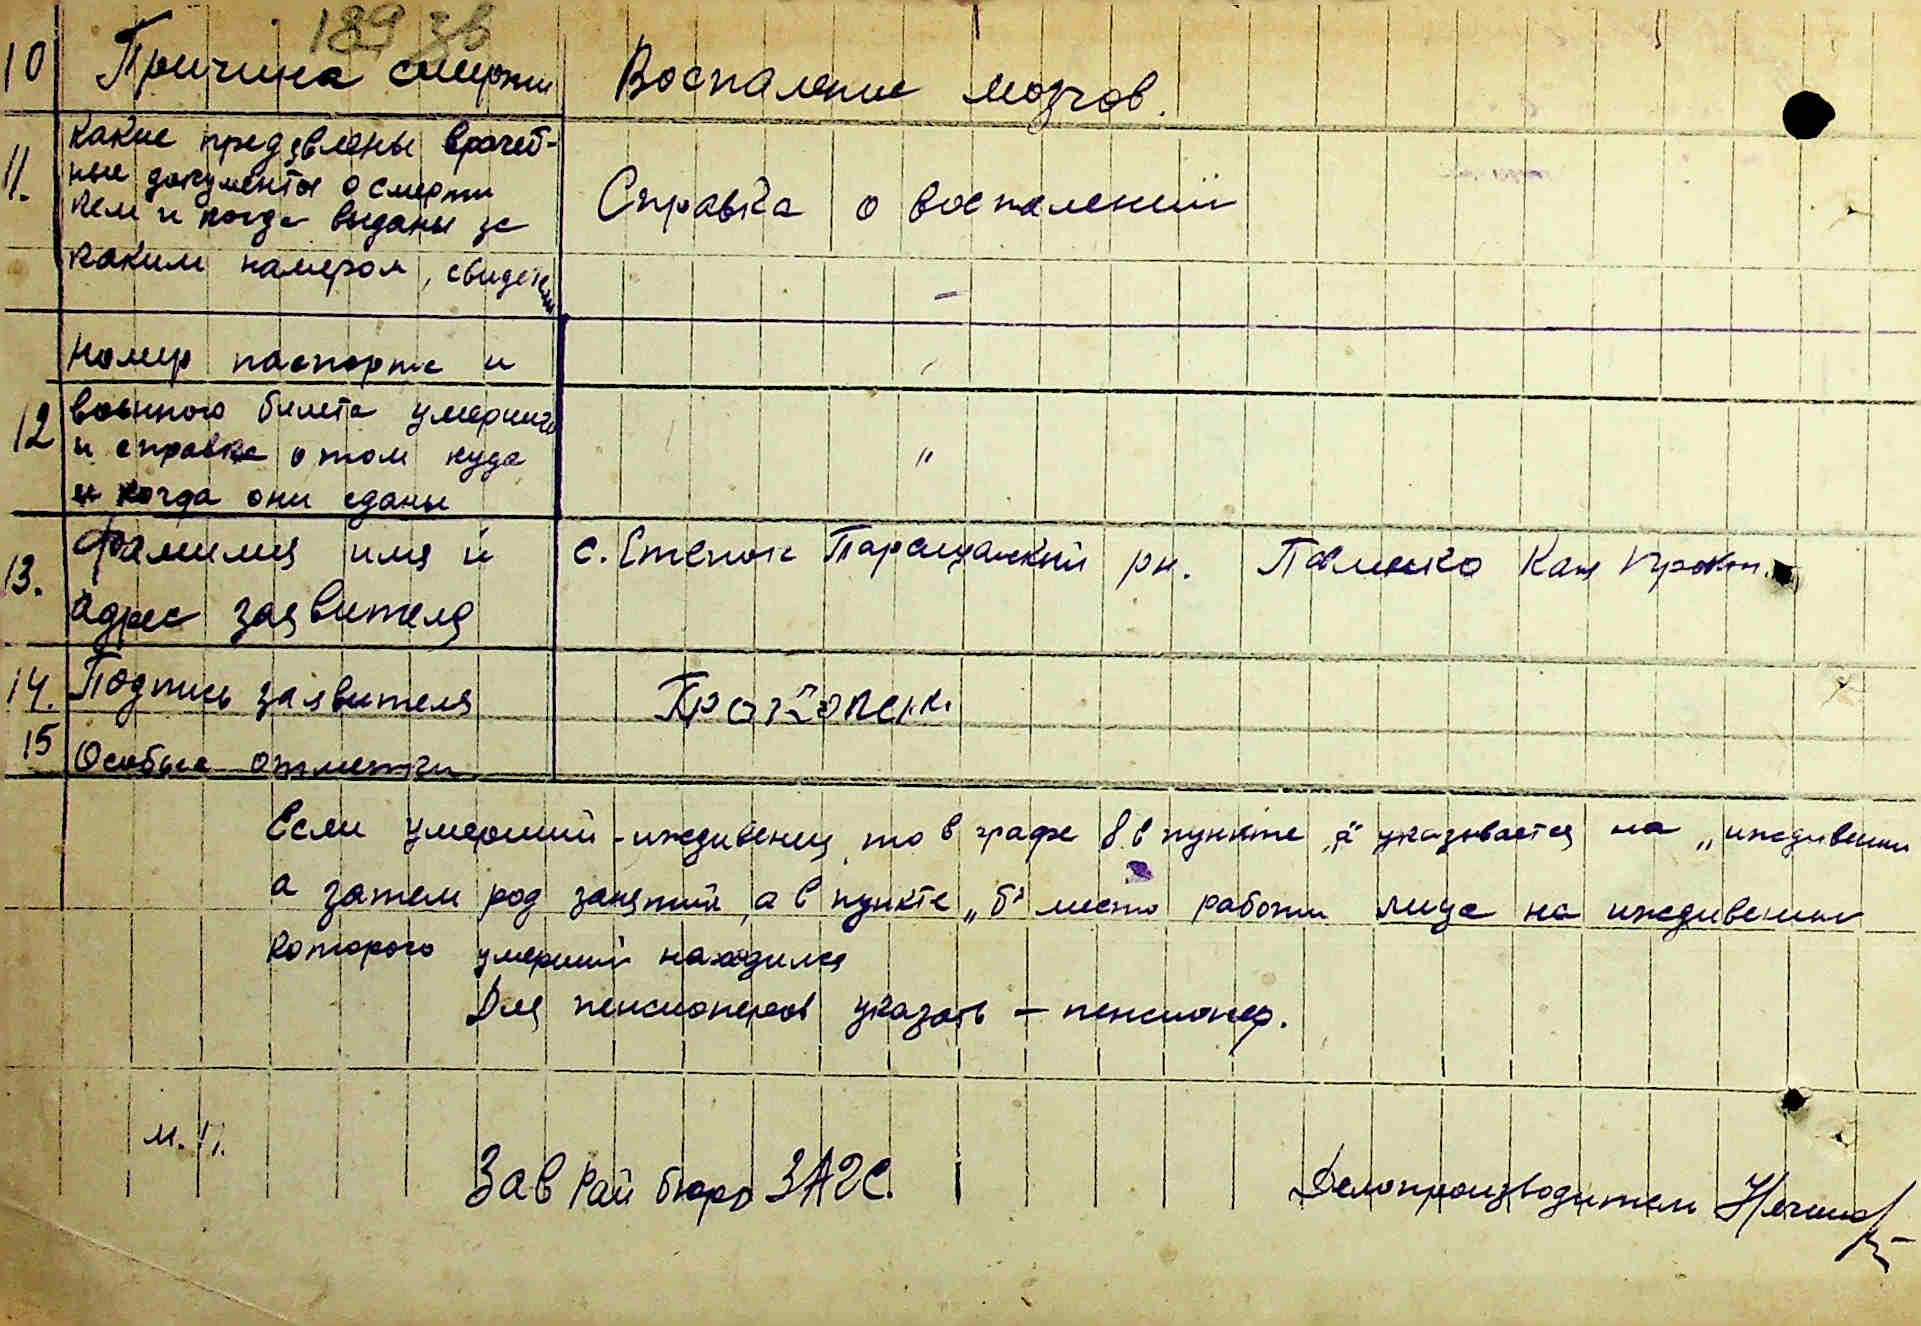 189 зв
10 Причина смерти Воспаление мозгов.
11. какие предявлены врачеб-
ные документы о смерти
кем и когда выданы за
каким намером, свидет
Справка о воспалений
номер паспорта и
12 военного билета умершего
и справка о том куда
и когда они сданы
"
13. Фамилия имя и
адрес заявителя
с. Степок Таращанский рн.
14. Подпись заявителя
15 Особые отметки
Если умерший - иждивенец, то в графе 8 в пункте "а" указывается на "иждивении
а затем род занятий, а в пункте "б" место работы лица на иждивении
которого умерший находился
Для пенсионеров указать - пенсионер.
м.п.
Зав Рай бюро ЗАГС.
Делопроизводитель